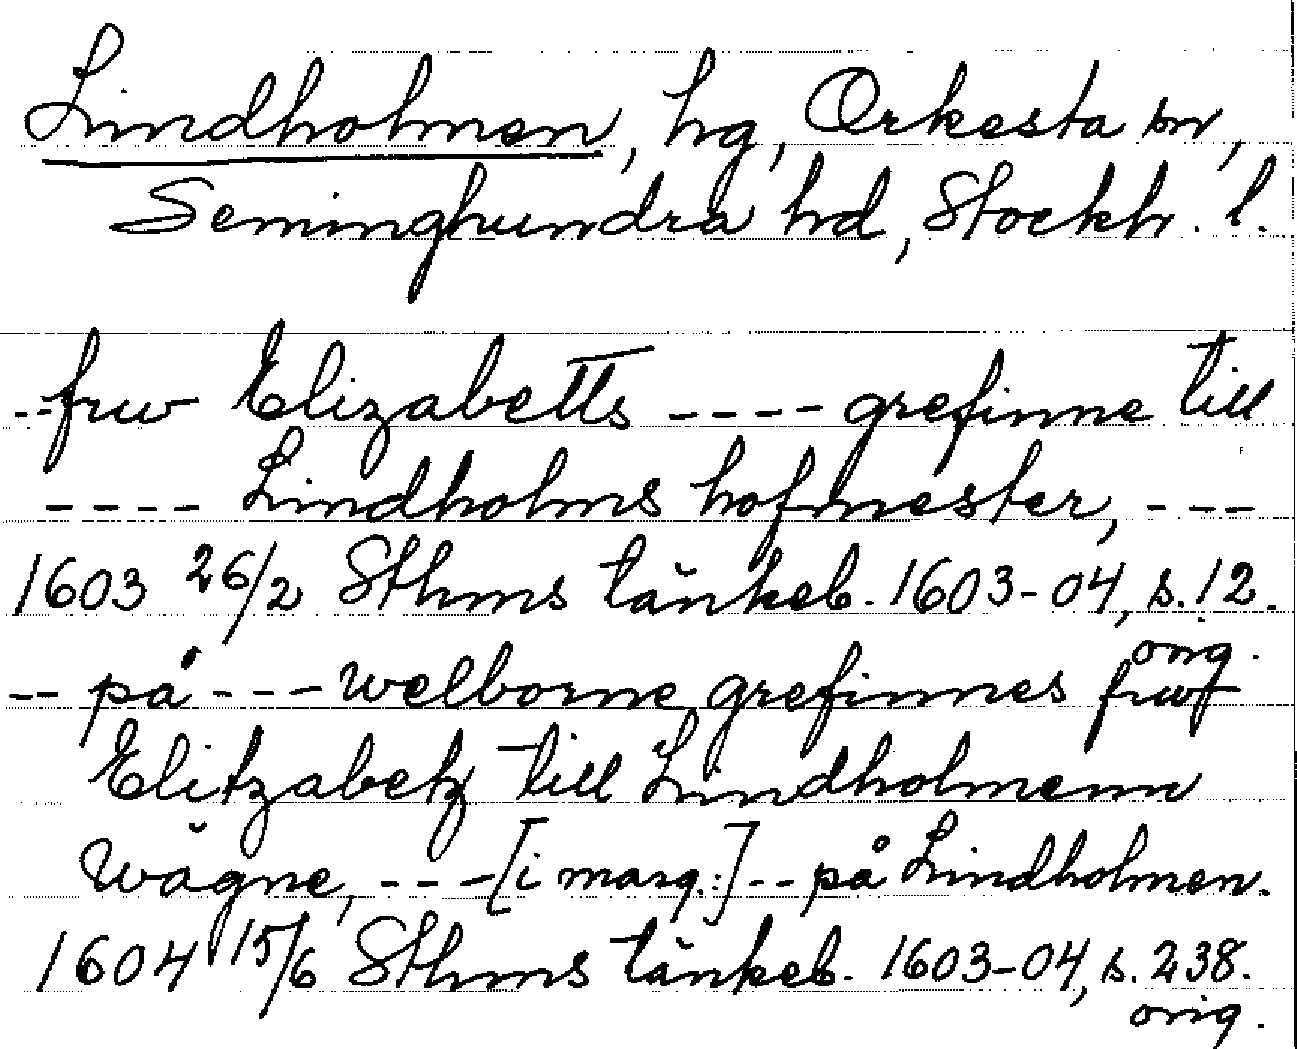 Lindholmen, hg, Orkesta sn,
Seminghundra hd, Stockh. l.
--frw Elizabetts ---- grefinne till
---- Lindholms hofmester, ---
1603 26/2 Sthms tänkeb. 1603-04, s. 12.
orig.
-- på --- welborne grefinnes frws
Elitzabetz till Lindholmenn
wägne, --- [i marg.:] -- på Lindholmen.
1604 15/6 Sthms tänkeb. 1603-04, s. 238.
orig.